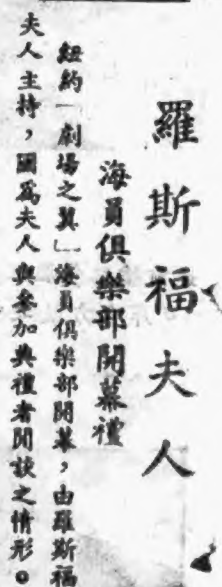 羅斯福夫人
海員俱樂部開幕禮
紐約「劇場之翼」海員俱樂部開幕，由羅斯福
夫人主持，圖爲夫人與參加典禮者閒談之情形。